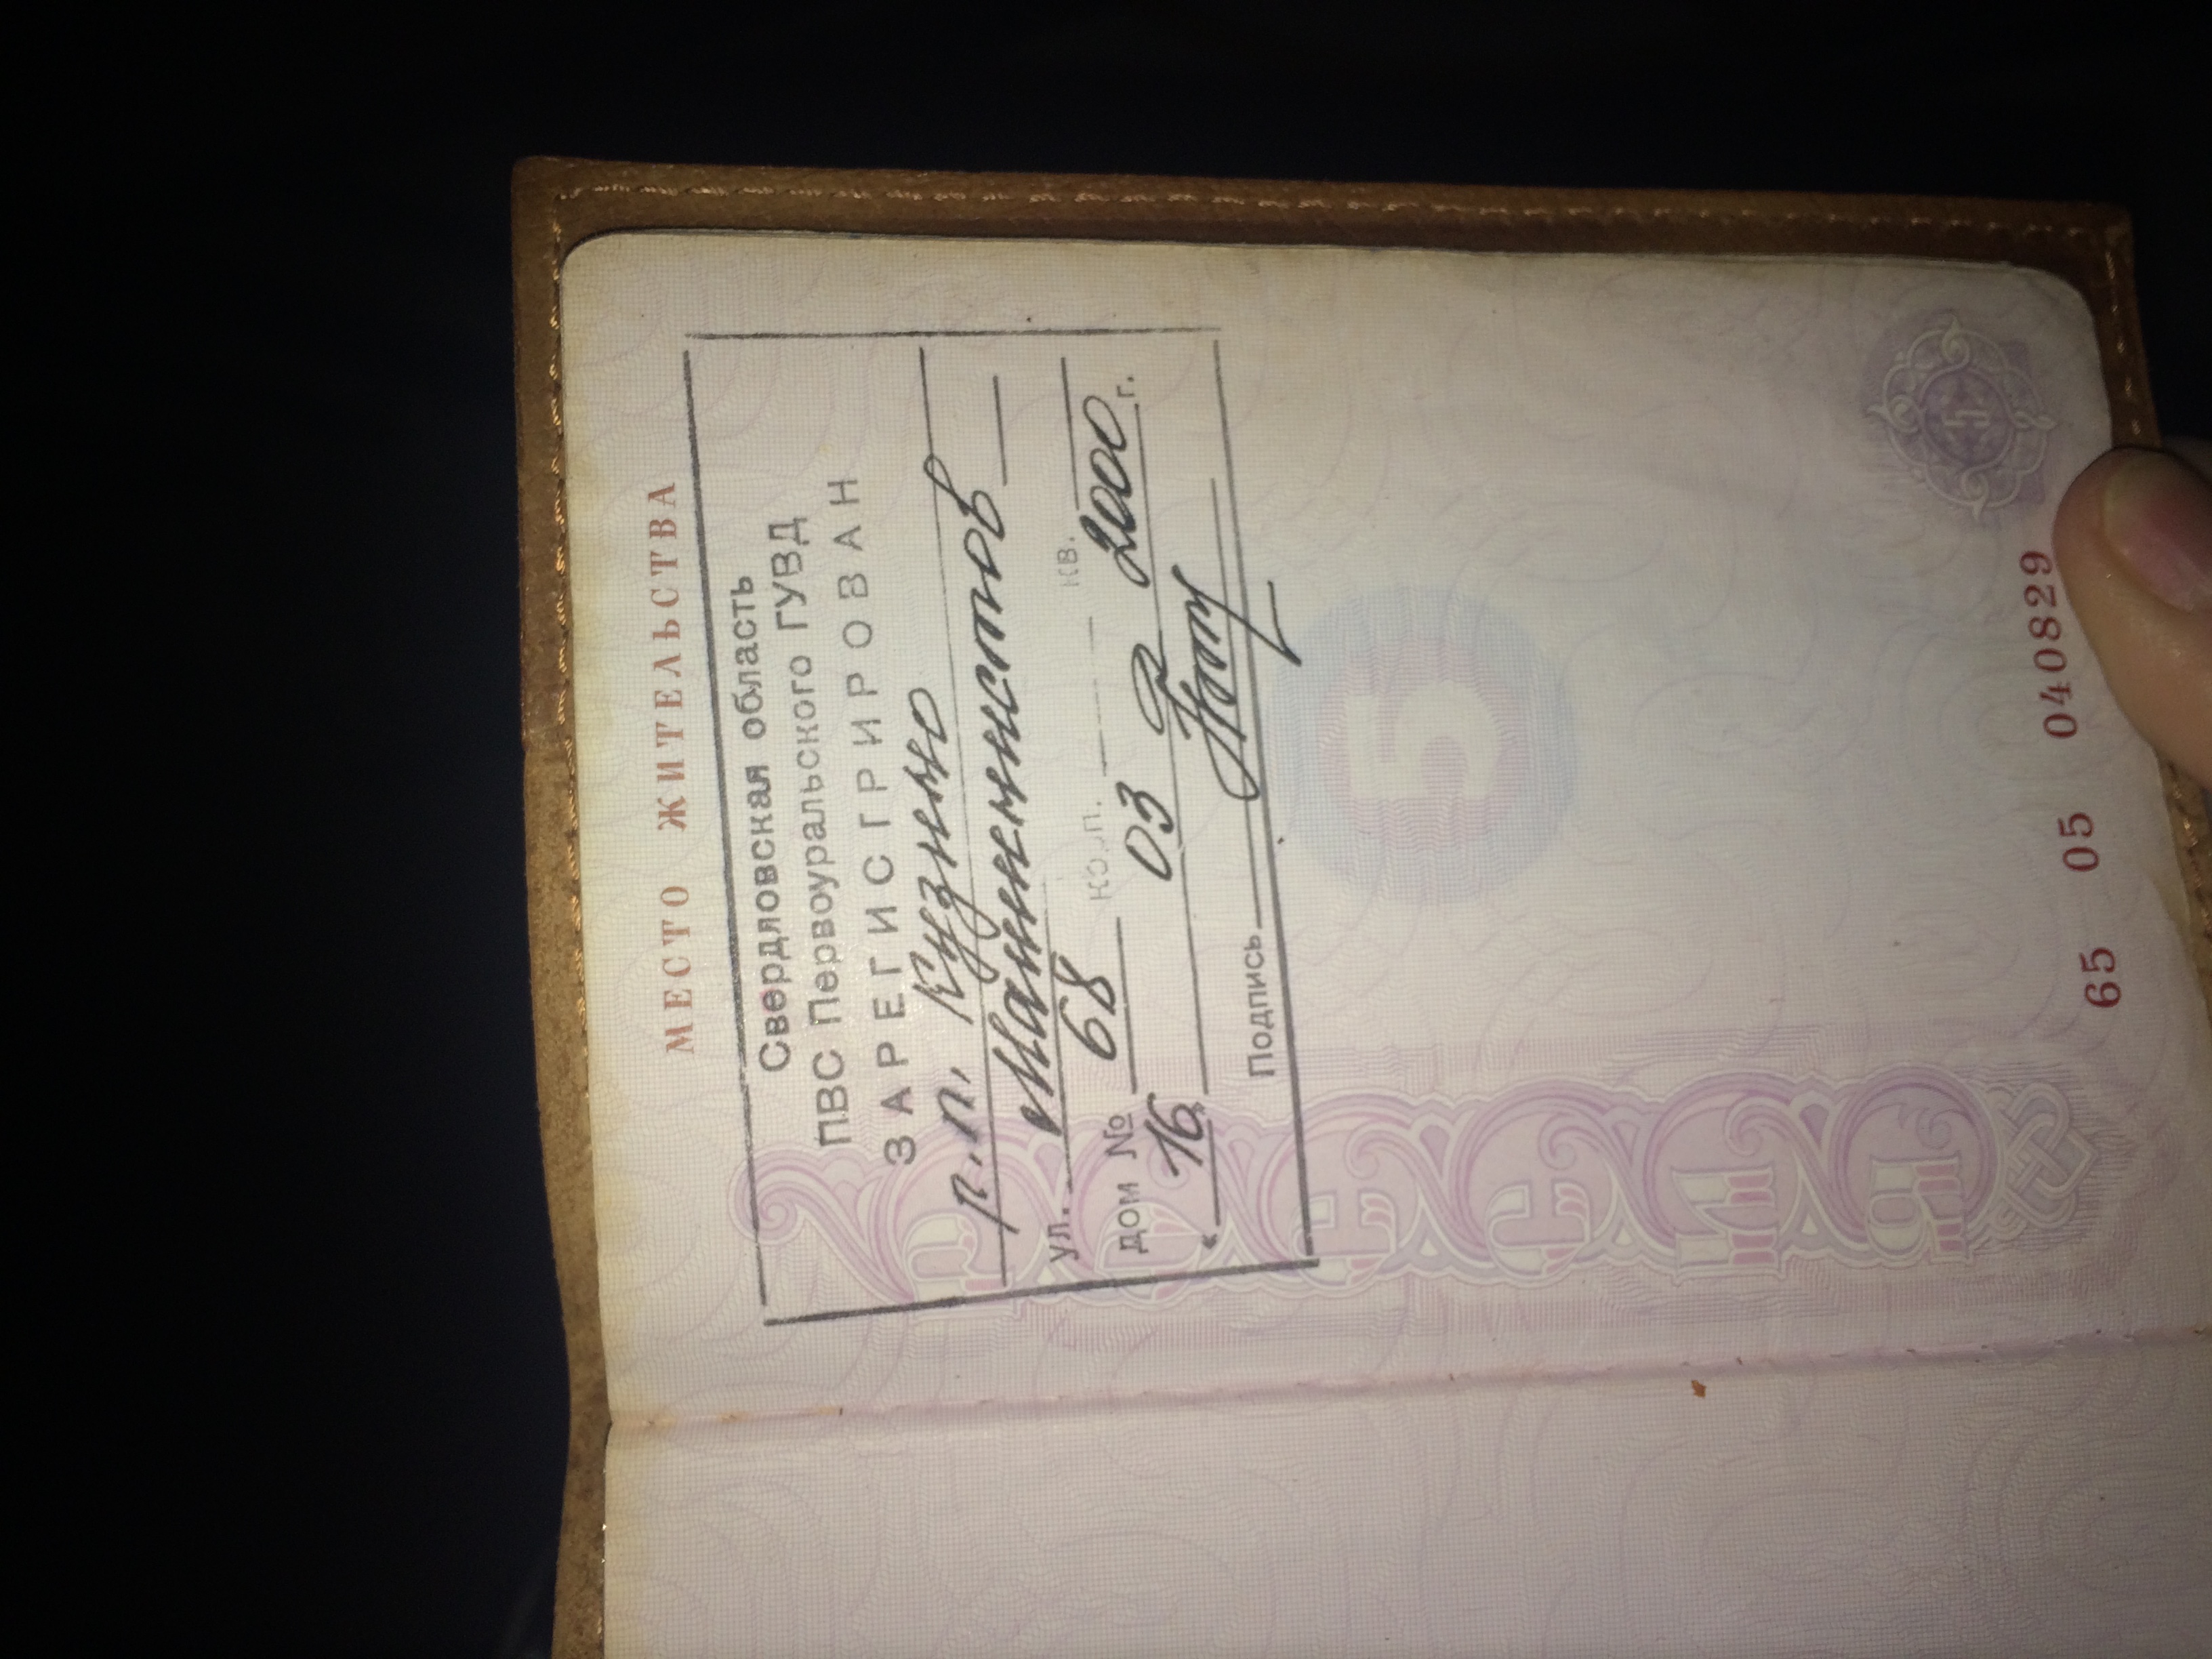 МЕСТО ЖИТЕЛЬСТВА
Свердловская область
ПВС Первоуральского ГУВД
ЗАРЕГИСТРИРОВАН
р.п. Кузино
ул. Машинистов
дом № 68 корп. кв.
« 16 » 03 2000 г.
Подпись
5
РОССИЯ
65 05 040829